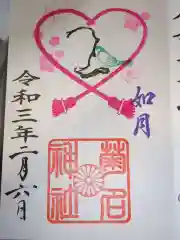 如月
令和三年二月六日
菊名
神社